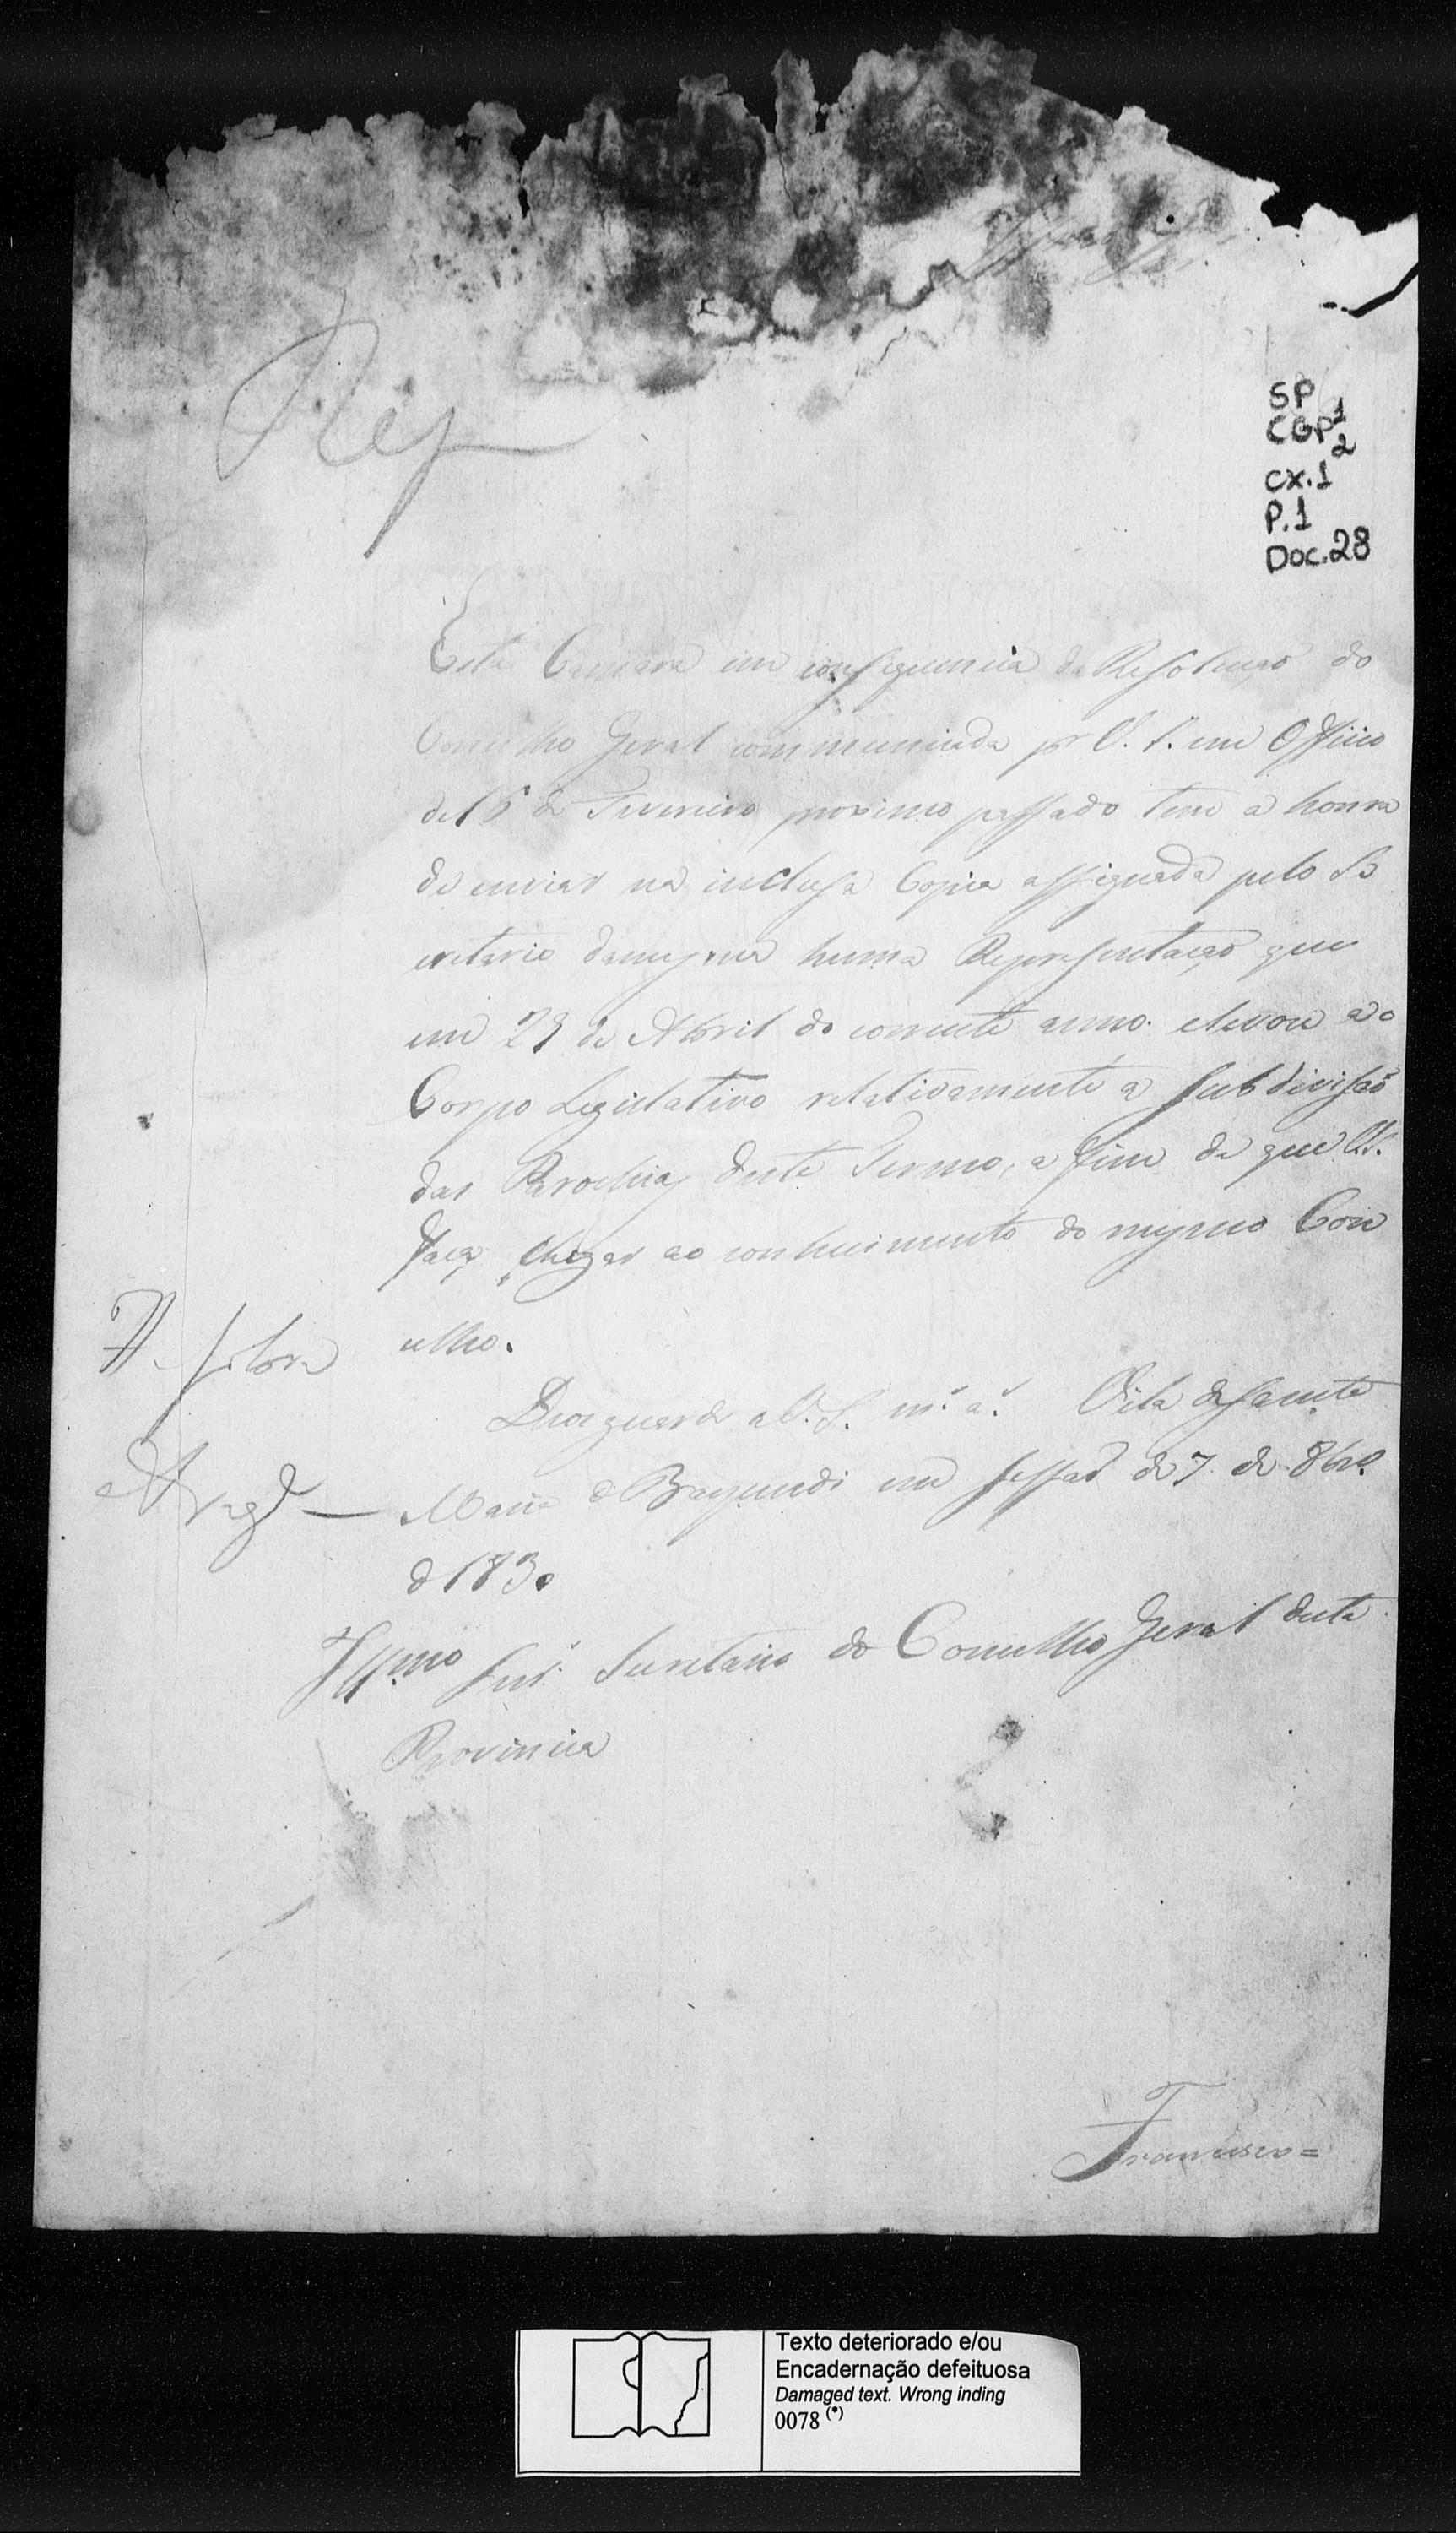 Illmo Snr.
Rep
SP
CGP 1
2
CX.1
P.1
Doc.28
Esta Camara em consequencia da Resoluçaõ do
Conselho Geral communicada pr V. S. em Officio
de 16 de Fevereiro proximo passado tem a honra
de enviar na inclusa Copia assignada pelo Se
cretario da mesma huma Representaçaõ que
em 29 de Abril do corrente anno elevou ao
Corpo Legislativo relativamente a subdivisaõ
das Parochias deste Termo, a fim de que V. S.
faça chegar ao conhecimento do mesmo Con
celho.
Deos guarde a V. S. ms. as. Villa de Santa
Maria de Baependi em sessaõ de 7 de 8bro.
de 1830
Illmo Snr. Secretario do Concelho Geral desta
Provincia
Francisco =
Texto deteriorado e/ou
Encadernação defeituosa
Damaged text. Wrong inding
0078 (*)